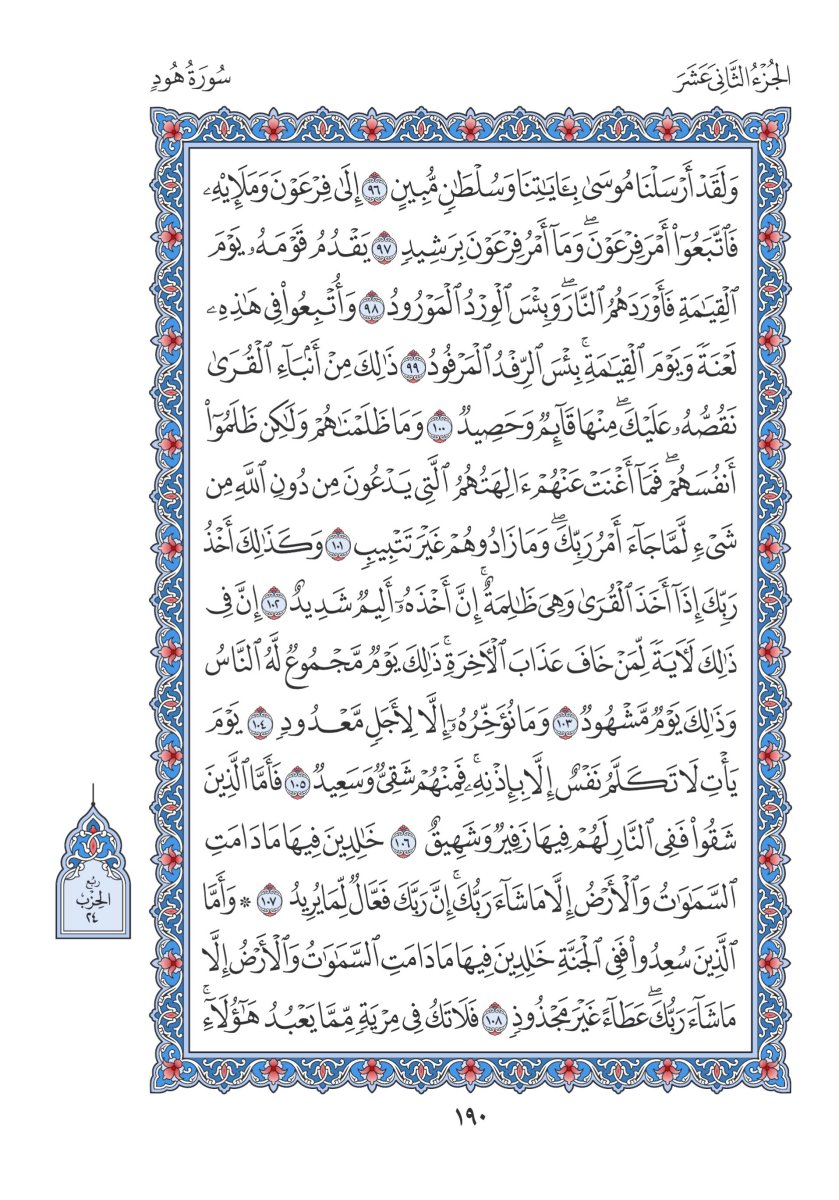 الجُزْءُ الثَّانِيَ عَشَرَ
سُورَةُ هُودٍ
وَلَقَدْ أَرْسَلْنَا مُوسَىٰ بِـَٔايَـٰتِنَا وَسُلْطَـٰنٍ مُّبِينٍ ٩٦ إِلَىٰ فِرْعَوْنَ وَمَلَإِي۟هِۦ
فَٱتَّبَعُوٓا۟ أَمْرَ فِرْعَوْنَ ۖ وَمَآ أَمْرُ فِرْعَوْنَ بِرَشِيدٍ ٩٧ يَقْدُمُ قَوْمَهُۥ يَوْمَ
ٱلْقِيَـٰمَةِ فَأَوْرَدَهُمُ ٱلنَّارَ ۖ وَبِئْسَ ٱلْوِرْدُ ٱلْمَوْرُودُ ٩٨ وَأُتْبِعُوا۟ فِى هَـٰذِهِۦ
لَعْنَةً وَيَوْمَ ٱلْقِيَـٰمَةِ ۚ بِئْسَ ٱلرِّفْدُ ٱلْمَرْفُودُ ٩٩ ذَٰلِكَ مِنْ أَنۢبَآءِ ٱلْقُرَىٰ
نَقُصُّهُۥ عَلَيْكَ ۖ مِنْهَا قَآئِمٌ وَحَصِيدٌ ١٠٠ وَمَا ظَلَمْنَـٰهُمْ وَلَـٰكِن ظَلَمُوٓا۟
أَنفُسَهُمْ ۖ فَمَآ أَغْنَتْ عَنْهُمْ ءَالِهَتُهُمُ ٱلَّتِى يَدْعُونَ مِن دُونِ ٱللَّهِ مِن
شَىْءٍ لَّمَّا جَآءَ أَمْرُ رَبِّكَ ۖ وَمَا زَادُوهُمْ غَيْرَ تَتْبِيبٍ ١٠١ وَكَذَٰلِكَ أَخْذُ
رَبِّكَ إِذَآ أَخَذَ ٱلْقُرَىٰ وَهِىَ ظَـٰلِمَةٌ ۚ إِنَّ أَخْذَهُۥٓ أَلِيمٌ شَدِيدٌ ١٠٢ إِنَّ فِى
ذَٰلِكَ لَـَٔايَةً لِّمَنْ خَافَ عَذَابَ ٱلْـَٔاخِرَةِ ۚ ذَٰلِكَ يَوْمٌ مَّجْمُوعٌ لَّهُ ٱلنَّاسُ
وَذَٰلِكَ يَوْمٌ مَّشْهُودٌ ١٠٣ وَمَا نُؤَخِّرُهُۥٓ إِلَّا لِأَجَلٍ مَّعْدُودٍ ١٠٤ يَوْمَ
يَأْتِ لَا تَكَلَّمُ نَفْسٌ إِلَّا بِإِذْنِهِۦ ۚ فَمِنْهُمْ شَقِىٌّ وَسَعِيدٌ ١٠٥ فَأَمَّا ٱلَّذِينَ
شَقُوا۟ فَفِى ٱلنَّارِ لَهُمْ فِيهَا زَفِيرٌ وَشَهِيقٌ ١٠٦ خَـٰلِدِينَ فِيهَا مَا دَامَتِ
ٱلسَّمَـٰوَٰتُ وَٱلْأَرْضُ إِلَّا مَا شَآءَ رَبُّكَ ۚ إِنَّ رَبَّكَ فَعَّالٌ لِّمَا يُرِيدُ ١٠٧ * وَأَمَّا
ٱلَّذِينَ سُعِدُوا۟ فَفِى ٱلْجَنَّةِ خَـٰلِدِينَ فِيهَا مَا دَامَتِ ٱلسَّمَـٰوَٰتُ وَٱلْأَرْضُ إِلَّا
مَا شَآءَ رَبُّكَ ۖ عَطَآءً غَيْرَ مَجْذُوذٍ ١٠٨ فَلَا تَكُ فِى مِرْيَةٍ مِّمَّا يَعْبُدُ هَـٰٓؤُلَآءِ ۚ
رُبع
الحِزْب
٢٤
١٩٠